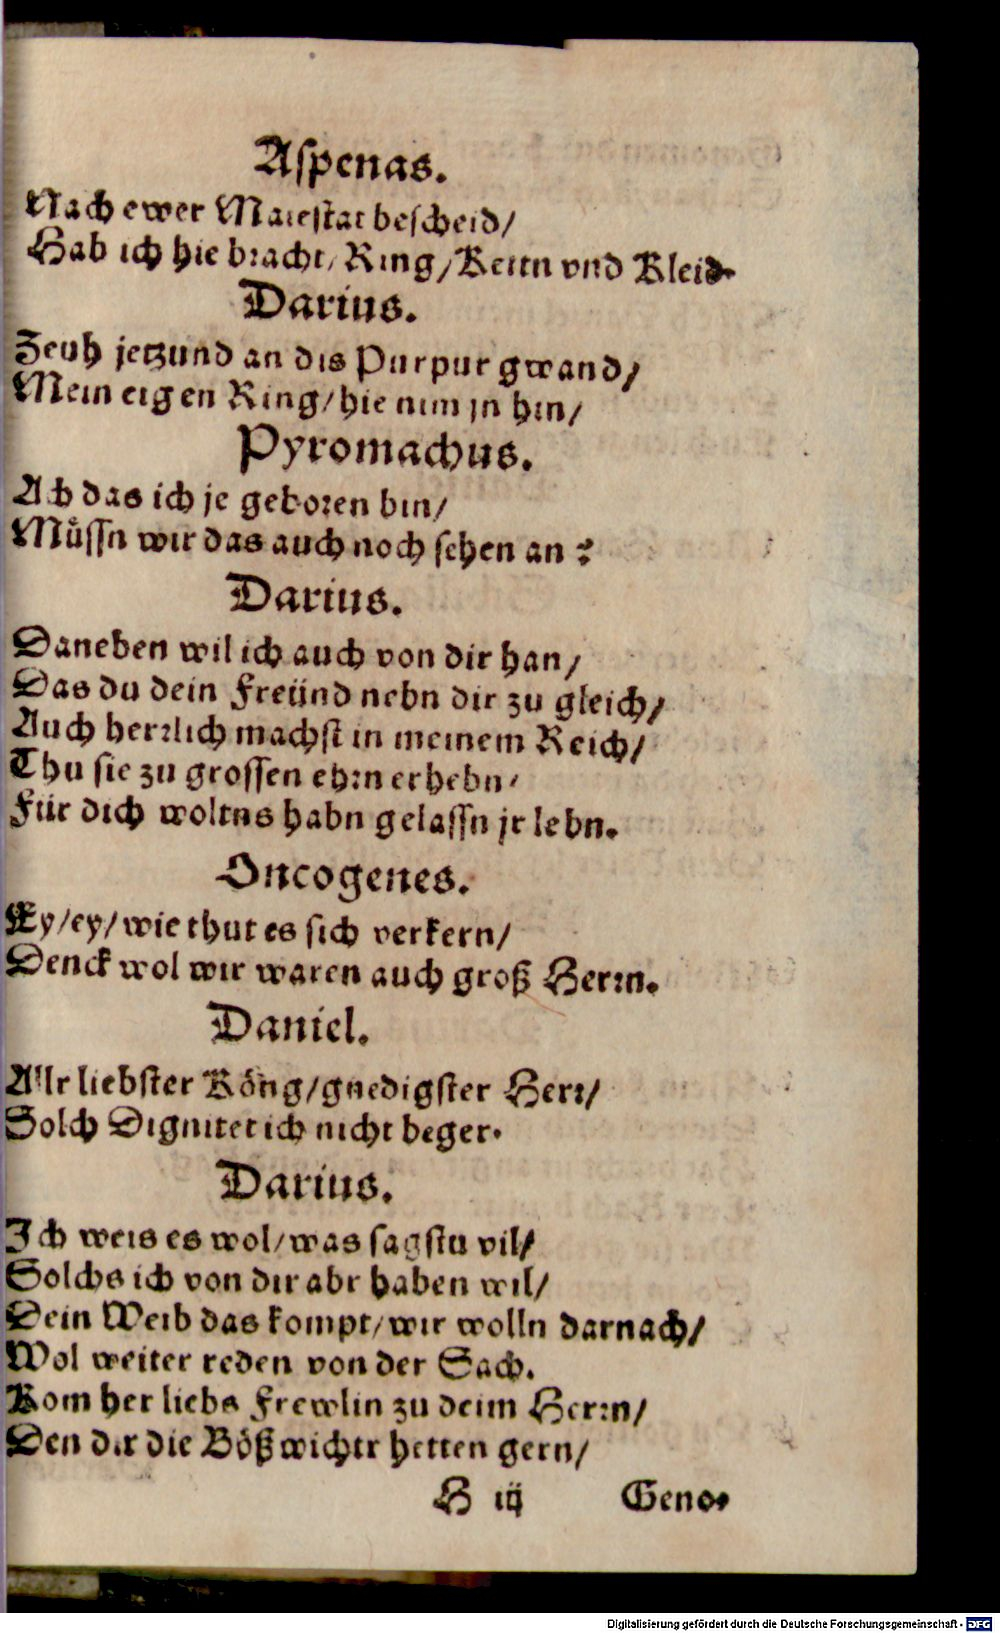 Aſpenas.
Nach ewer Maieſtat beſcheid/
Hab ich hie bracht/ Ring/ Kettn vnd Kleid.
Darius.
Zeuh jetzund an dis Purpur gwand/
Mein eigen Ring/ hie nim jn hin/
Pyromachus.
Ach das ich je geboren bin/
Müſſn wir das auch noch ſehen an?
Darius.
Daneben wil ich auch von dir han/
Das du dein Freünd nebn dir zu gleich/
Auch herrlich machſt in meinem Reich/
Thu ſie zu groſſen ehrn erhebn/
Für dich woltns habn gelaſſn jr lebn.
Oncogenes.
Ey/ ey/ wie thut es ſich verkern/
Denck wol wir waren auch groß Herrn.
Daniel.
Allr liebſter Köng/ gnedigſter Herr/
Solch Dignitet ich nicht beger.
Darius.
Ich weis es wol/ was ſagſtu vil/
Solchs ich von dir abr haben wil/
Dein Weib das kompt/ wir wolln darnach/
Wol weiter reden von der Sach.
Kom her liebs Frewlin zu deim Herrn/
Den dir die Bößwichtr hetten gern/
H iij Geno-
Digitalisierung gefördert durch die Deutsche Forschungsgemeinschaft - DFG